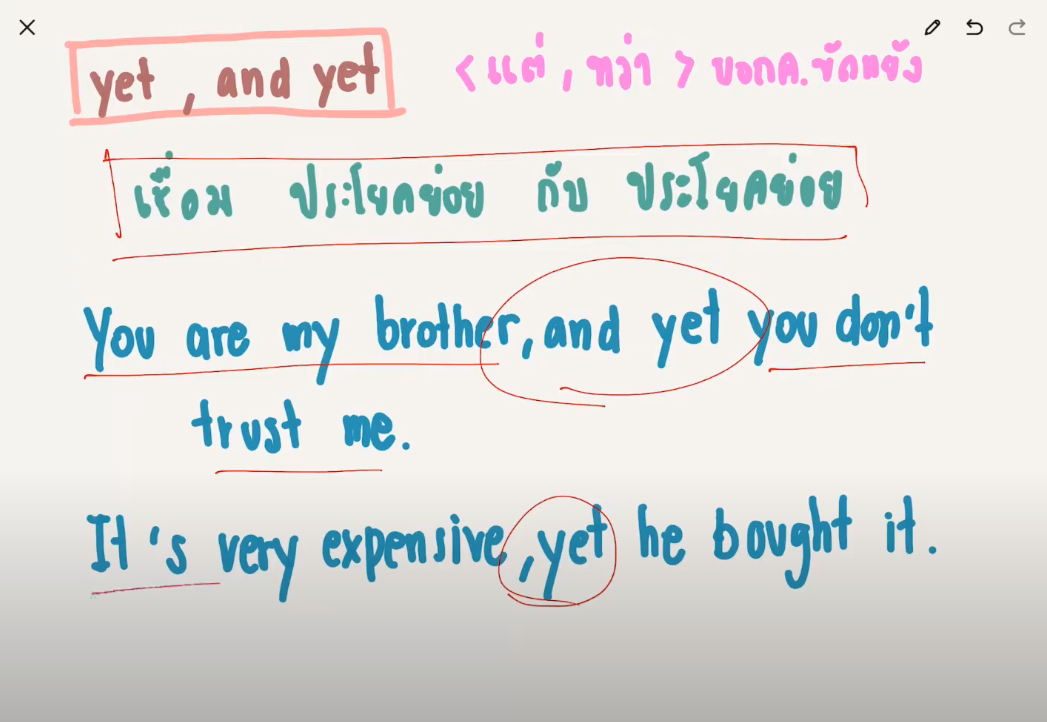 yet, and yet <แต่, ทว่า> บอกค.ขัดแย้ง
เชื่อม ประโยคย่อย กับ ประโยคย่อย
You are my brother, and yet you don't
trust me.
It's very expensive, yet he bought it.